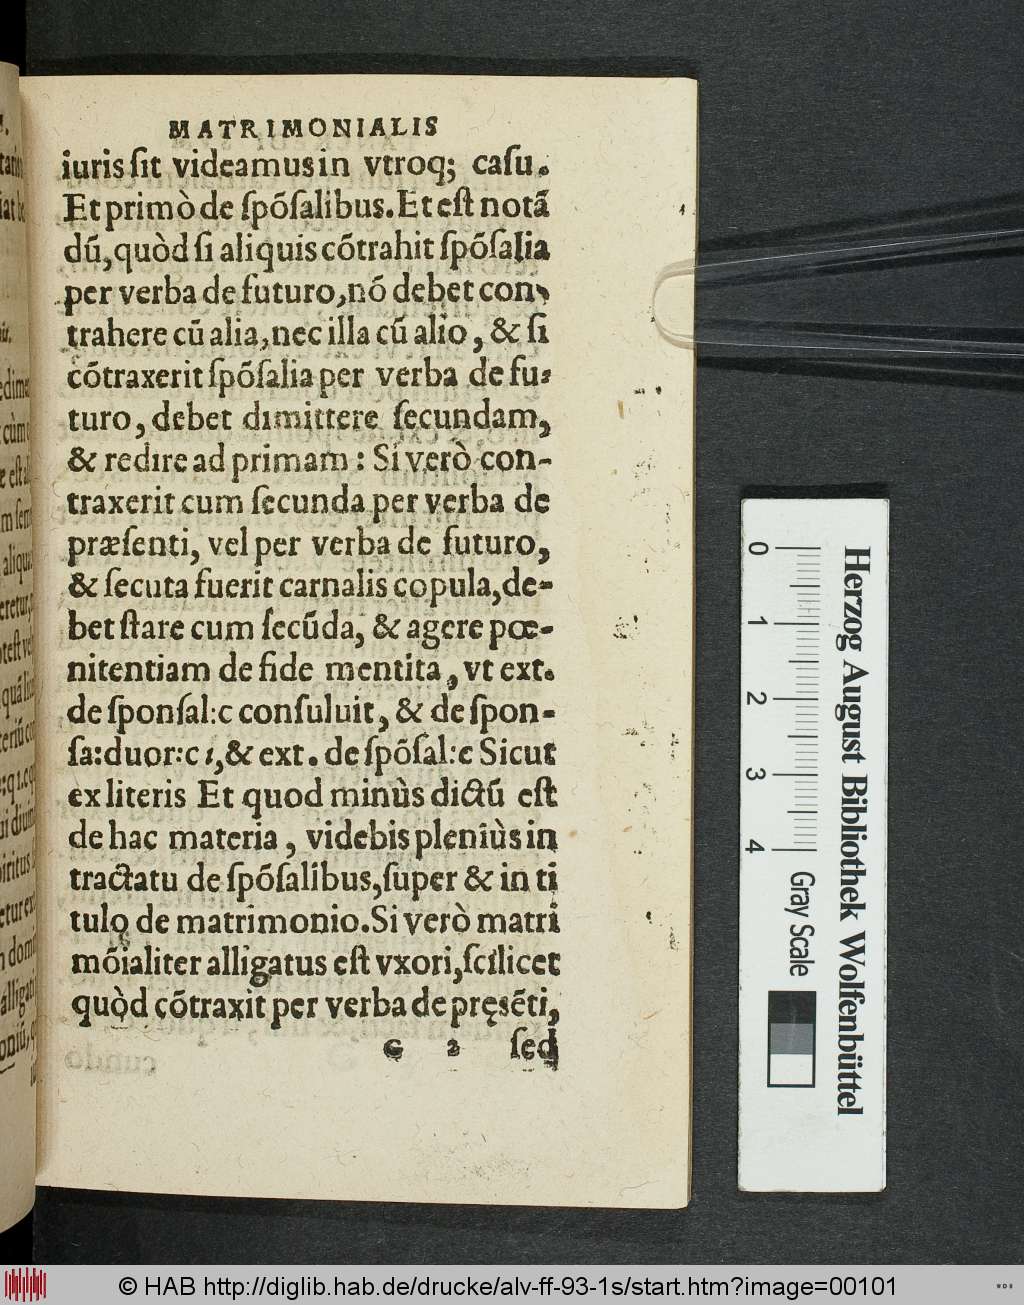 MATRIMONIALIS
iuris ſit videamus in vtroq; caſu.
Et primò de ſpõſalibus. Et eſt notã
dũ, quòd ſi aliquis cõtrahit ſpõſalia
per verba de futuro, nõ debet con-
trahere cũ alia, nec illa cũ alio, & ſi
cõtraxerit ſpõſalia per verba de fu-
turo, debet dimittere ſecundam,
& redire ad primam: Si verò con-
traxerit cum ſecunda per verba de
præſenti, vel per verba de futuro,
& ſecuta fuerit carnalis copula, de-
bet ſtare cum ſecũda, & agere pœ-
nitentiam de fide mentita, vt ext.
de ſponſal: c conſuluit, & de ſpon-
ſa: duor: c 1, & ext. de ſpõſal: c Sicut
ex literis Et quod minùs dictũ eſt
de hac materia, videbis pleniùs in
tractatu de ſpõſalibus, ſuper & in ti
tulo de matrimonio. Si verò matri
mõialiter alligatus eſt vxori, ſcilicet
quòd cõtraxit per verba de pręsẽti,
G 2 ſed
0 1 2 3 4
Herzog August Bibliothek Wolfenbüttel
Gray Scale
© HAB http://diglib.hab.de/drucke/alv-ff-93-1s/start.htm?image=00101